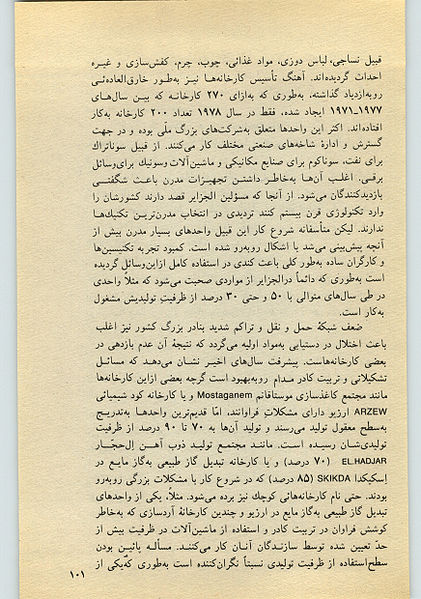 قبیل نساجی، لباس دوزی، مواد غذائی، چوب، چرم، کفش‌سازی و غیره
احداث گردیده‌اند. آهنگ تأسیس کارخانه‌ها نیز به‌طور خارق‌العاده‌ئی
روبه‌ازدیاد گذاشته، به‌طوری که به‌ازای ۲۷۰ کارخانه که بین سال‌های
۱۹۷۷ــ۱۹۷۱ ایجاد شده، فقط در سال ۱۹۷۸ تعداد ۲۰۰ کارخانه به‌کار
افتاده‌اند. اکثر این واحدها متعلق به‌شرکت‌های بزرگ ملّی بوده و در جهت
گسترش و ادارهٔ شاخه‌های صنعتی مختلف کار می‌کنند. از قبیل سوناتراک
برای نفت، سوناکوم برای صنایع مکانیکی و ماشین‌آلات وسونیک برای‌وسائل
برقی. اغلب آن‌ها به‌خاطر داشتن تجهیزات مدرن باعث شگفتی
بازدیدکنندگان می‌شود. از آنجا که مسؤلین الجزایر قصد دارند کشورشان را
وارد تکنولوژی قرن بیستم کنند تردیدی در انتخاب مدرن‌ترین تکنیک‌ها
ندارند. لیکن متأسفانه شروع کار این قبیل واحدهای بسیار مدرن بیش از
آنچه پیش‌بینی می‌شد با اشکال روبه‌رو شده است. کمبود تجربه تکنیسین‌ها
و کارگران ساده به‌طور کلی باعث کندی در استفاده کامل ازاین‌وسائل گردیده
است به‌طوری که دائماً درالجزایر از مواردی صحبت می‌شود که مثلاً واحدی
در طی سال‌های متوالی با ۵۰ و حتی ۳۰ درصد از ظرفیتِ تولیدیش مشغول
به‌کار است.
ضعف شبکهٔ حمل و نقل و تراکم شدید بنادر بزرگ کشور نیز اغلب
باعث اختلال در دستیابی به‌مواد اولیه می‌گردد که نتیجهٔ آن عدم بازدهی در
بعضی کارخانه‌هاست. پیشرفت سال‌های اخیر نشان می‌دهد که مسائل
تشکیلاتی و تربیت کادر مدام روبه‌بهبود است گرچه بعضی ازاین کارخانه‌ها
مانند مجتمع کاغذسازی موستاقانم Mostaganem و یا کارخانه کود شیمیائی
ARZEW ارزیو دارای مشکلات فراوانند، امّا قدیم‌ترین واحدها به‌تدریج
به‌سطح معقول تولید می‌رسند و تولید آن‌ها به ۷۰ تا ۹۰ درصد از ظرفیت
تولیدی‌شان رسیده است. مانند مجتمع تولید ذوب آهن اِل‌حجّار
EL.HADJAR (۷۰ درصد) و یا کارخانه تبدیل گاز طبیعی به‌گاز مایع در
اِسکیکدا SKIKDA (۸۵ درصد) که در شروع کار با مشکلات بزرگی روبه‌رو
بودند. حتی نام کارخانه‌هائی کوچک نیز برده می‌شود. مثلاً، یکی از واحدهای
تبدیل گاز طبیعی به‌گاز مایع در ارزیو و چندین کارخانهٔ آردسازی که به‌خاطر
کوشش فراوان در تربیت کادر و استفاده از ماشین‌آلات در ظرفیت بیش از
حد تعیین شده توسط سازندگان آنان کار می‌کنند. مسأله پائین بودن
سطح‌استفاده از ظرفیت تولیدی نسبتاً نگران‌کننده است به‌طوری که یکی از
۱۰۱